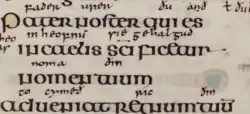 fader urien ðu arð
Pater noster qui es
in heofnum sie gehalgud
in caelis scificetur
noma ðin
nomen tuum
to cymeð ric ðin
adueniat regnum tuu